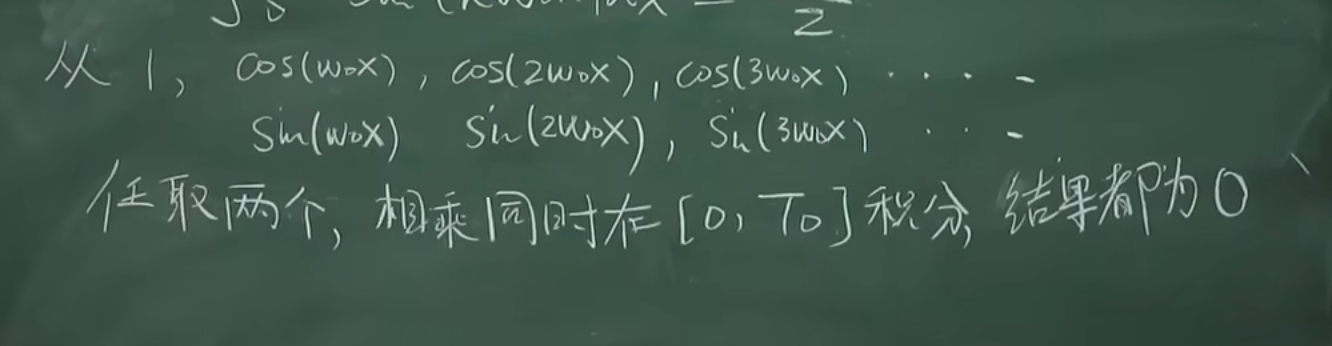 从 1, cos(ω₀x), cos(2ω₀x), cos(3ω₀x) ·····
sin(ω₀x) sin(2ω₀x), sin(3ω₀x) ···
任取两个, 相乘同时在[0, T₀]积分, 结果都为0